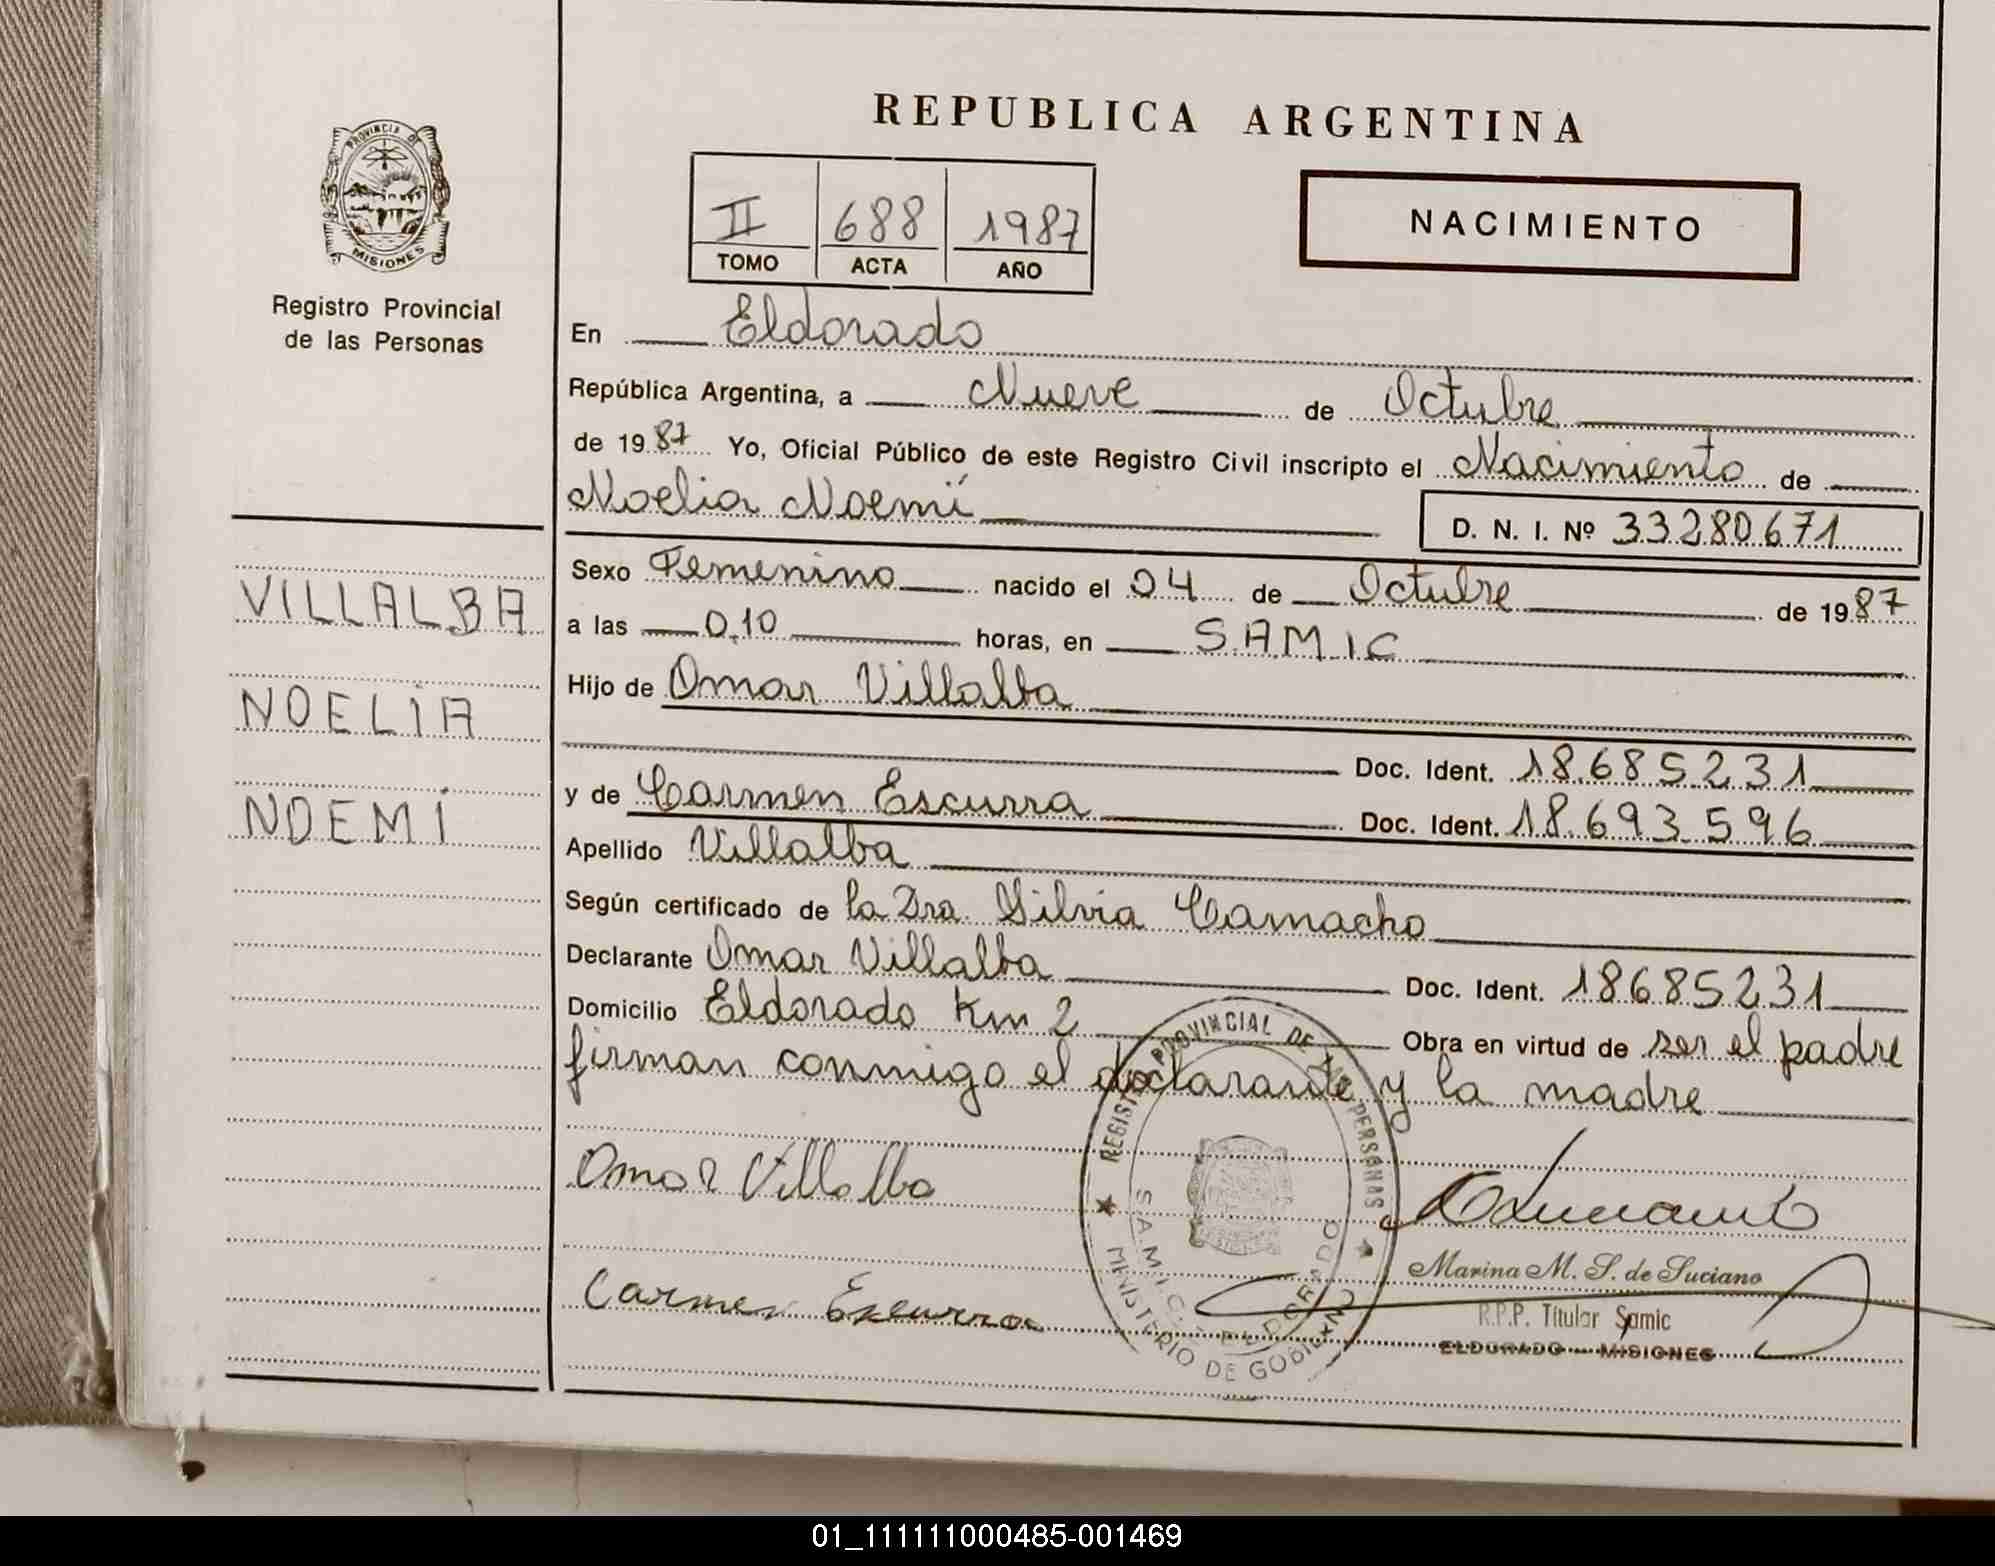 PROVINCIA DE
MISIONES
Registro Provincial
de las Personas
VILLALBA
NOELIA
NOEMÍ
REPUBLICA ARGENTINA
II 688 1987
TOMO ACTA AÑO
NACIMIENTO
En Eldorado
República Argentina, a Nueve de Octubre
de 1987 Yo, Oficial Público de este Registro Civil inscripto el Nacimiento de
Noelia Noemí
D. N. I. Nº 33280671
Sexo Femenino nacido el 04 de Octubre de 1987
a las 0,10 horas, en S.A.M.I.C
Hijo de Omar Villalba
Doc. Ident. 18.685.231
y de Carmen Escurra Doc. Ident. 18.693.596
Apellido Villalba
Según certificado de la Dra. Silvia Camacho
Declarante Omar Villalba Doc. Ident. 18685231
Domicilio Eldorado Km 2 Obra en virtud de ser el padre
firman conmigo el declarante y la madre
Omar Villalba
Carmen Escurra
REGISTRO PROVINCIAL DE LAS PERSONAS
S.A.M.I.C. ELDORADO
MINISTERIO DE GOBIERNO
Marina M. S. de Luciano
R.P.P. Titular Samic
ELDORADO - MISIONES
01_111111000485-001469